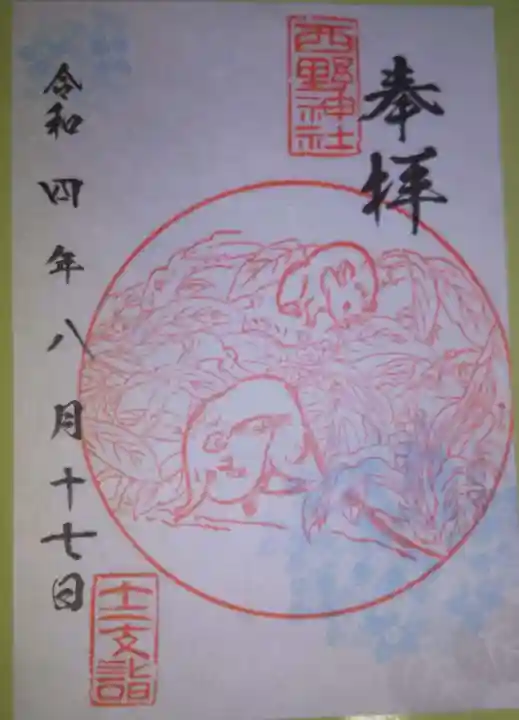 奉拝
西野神社
令和四年八月十七日
十二支詣